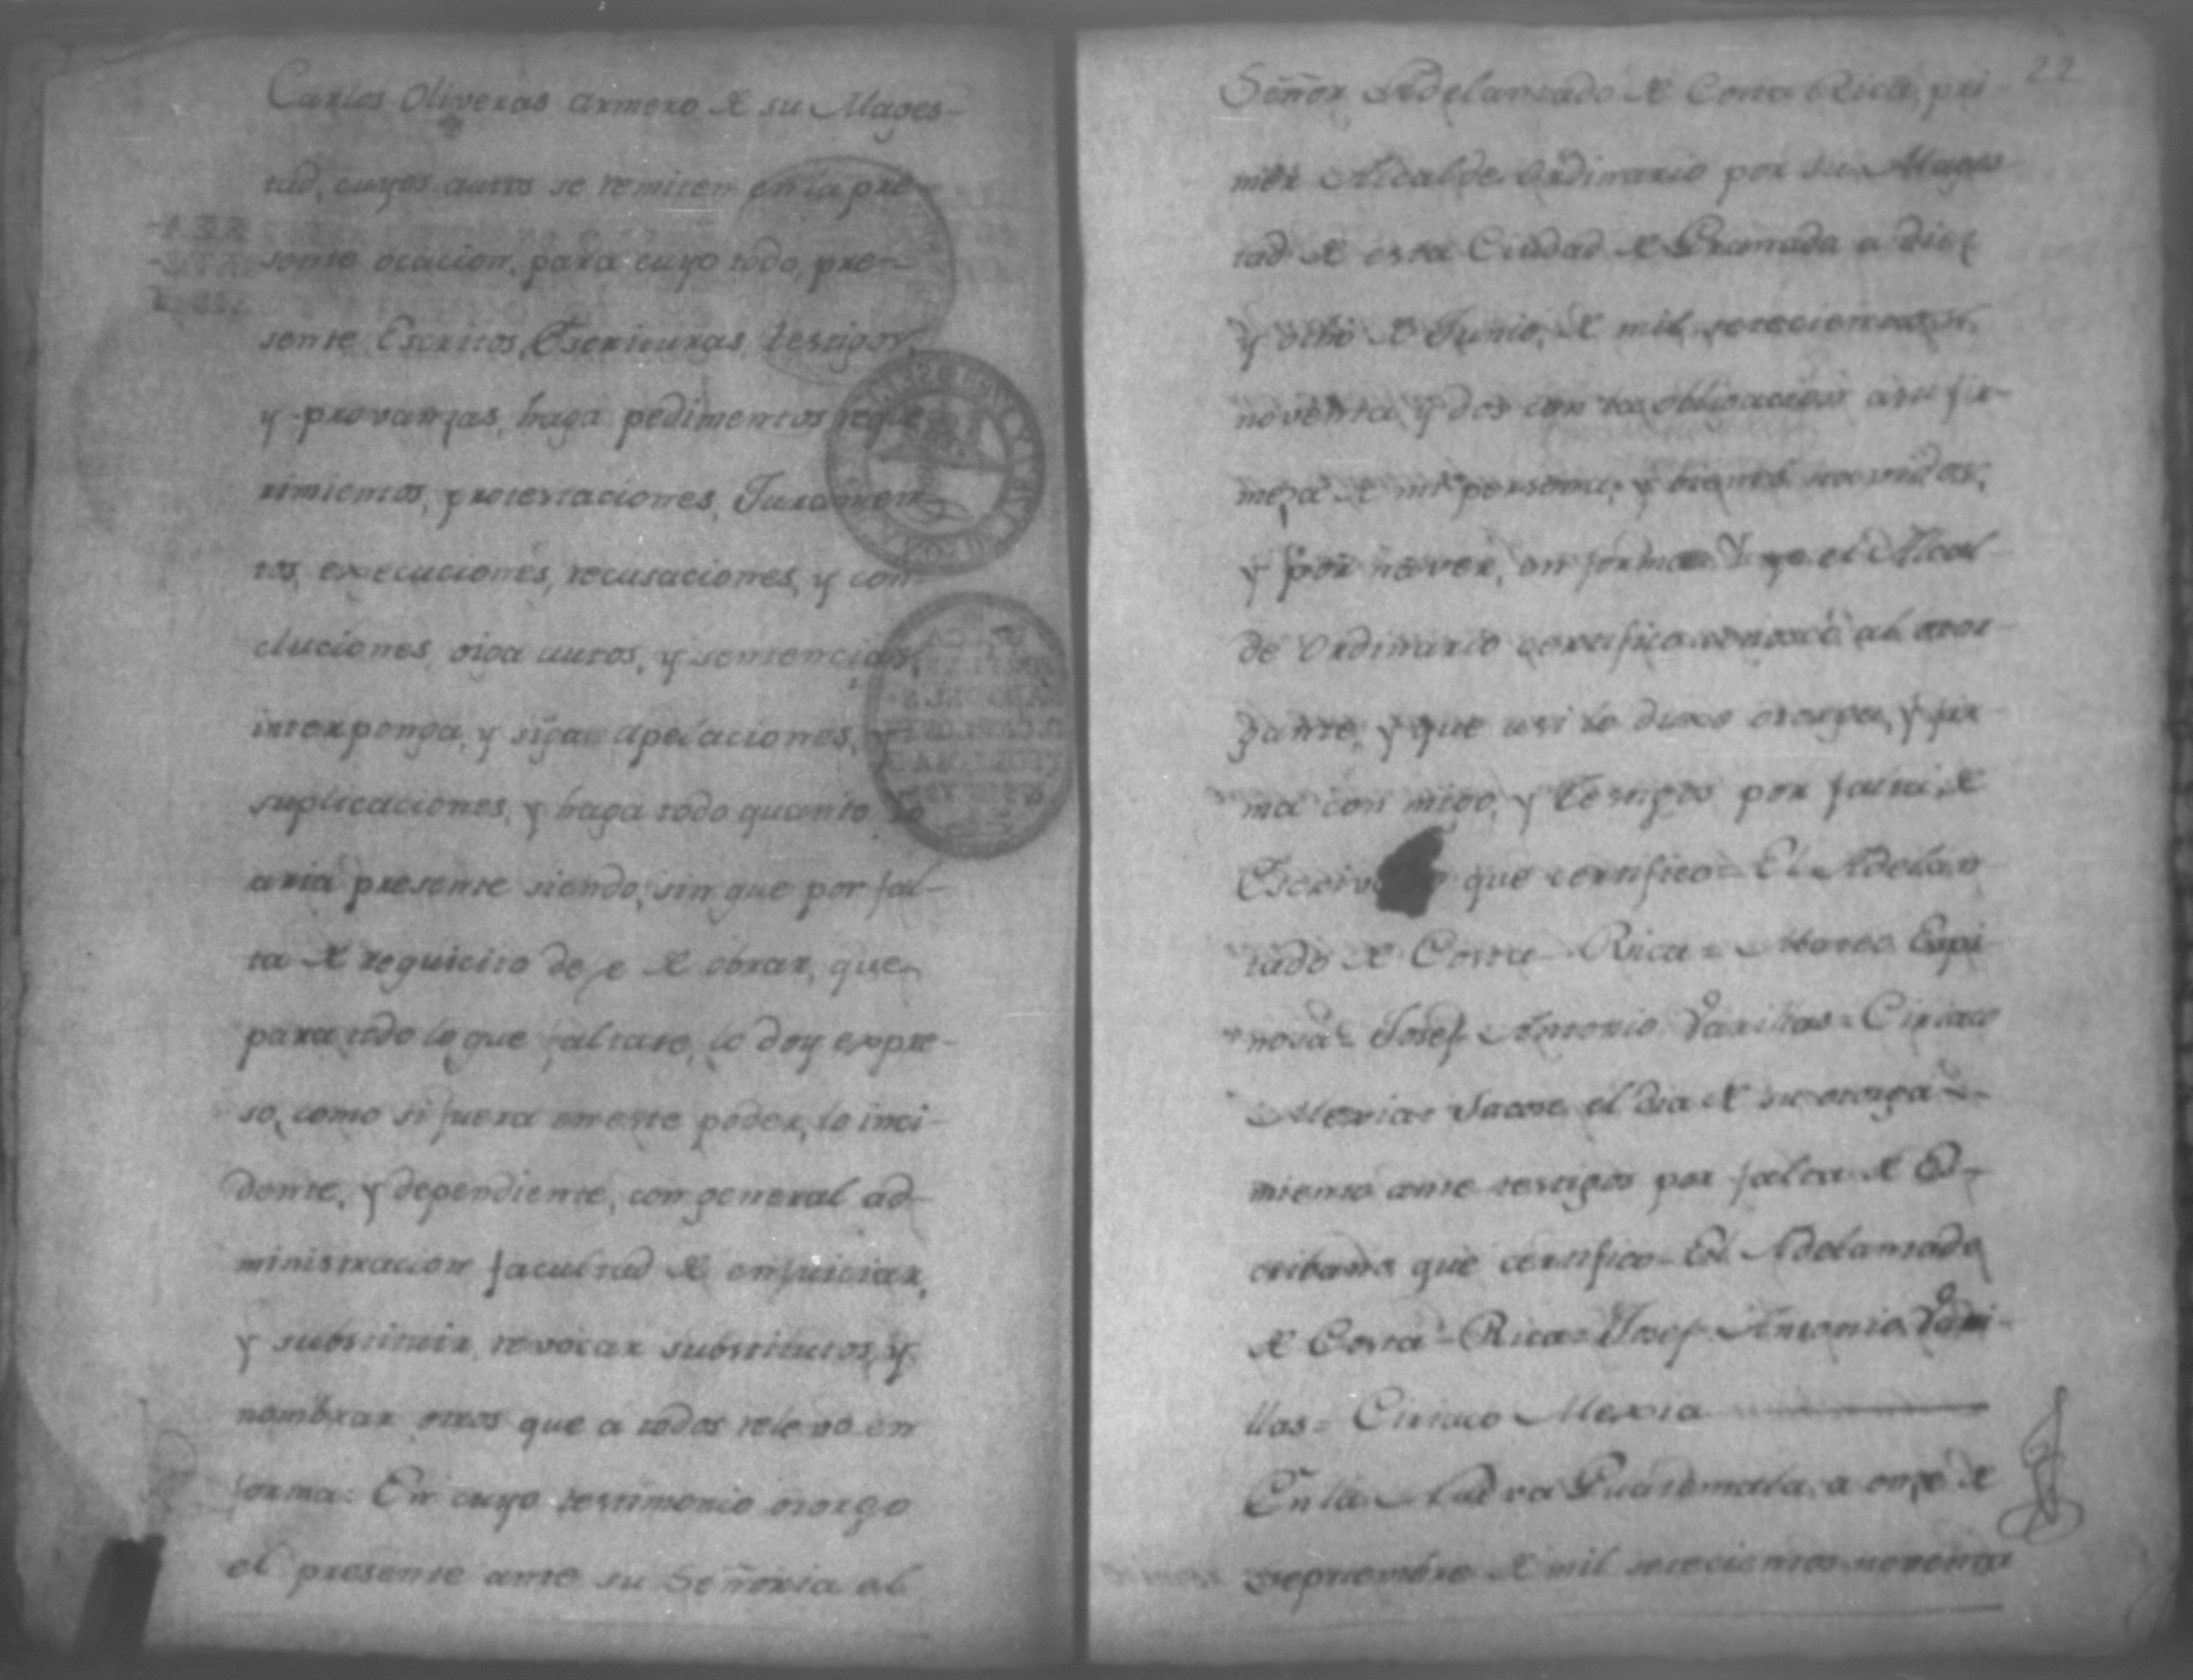 Carlos Oliveras armero de su Mages-
tad, cuyos autos se remiten en la pre-
sente ocacion, para cuyo todo, pre-
sente Escritos, Escrituras, testigos,
y provanzas, haga pedimentos reque-
rimientos, protestaciones, Juramen-
tos, execuciones, recusaciones, y con-
cluciones, oiga autos, y sentencias,
interponga, y siga apelaciones, y
suplicaciones, y haga todo quanto lo
aria presente siendo, sin que por fal-
ta de requicito dexe de obrar, que
para todo lo que faltare, lo doy expre-
so, como si fuera en este poder, lo inci-
dente, y dependiente, con general ad-
ministracion facultad de enjuiciar,
y substituir, revocar substitutos, y
nombrar otros que a todos relevo en
forma: En cuyo testimonio otorgo
el presente ante su Señoria el
22
Señor Adelantado de Costa Rica, pri-
mer Alcalde Ordinario por su Mages-
tad de esta Ciudad de Granada a diez
y ocho de Junio, de mil setecientos
noventa y dos con la obligacion a su fir-
meza de mi persona, y bienes havidos,
y por haver, en forma Y yo el Alcal-
de Ordinario certifico conosco al otor-
gante, y que asi lo dixo otorga, y fir-
ma con migo, y testigos por falta de
que certifico = El Adelan-
tado de Costa-Rica = Mateo Espi-
nosa = Josef Antonio Varillas = Ciriaco
Mexia = Sacose el dia de su otorga-
miento ante testigos por falta de Es-
cribano que certifico = El Adelantado
de Costa-Rica = Josef Antonio Vari-
llas = Ciriaco Mexia
En la Nueva Guatemala, a onze de
Septiembre de mil setecientos noventa